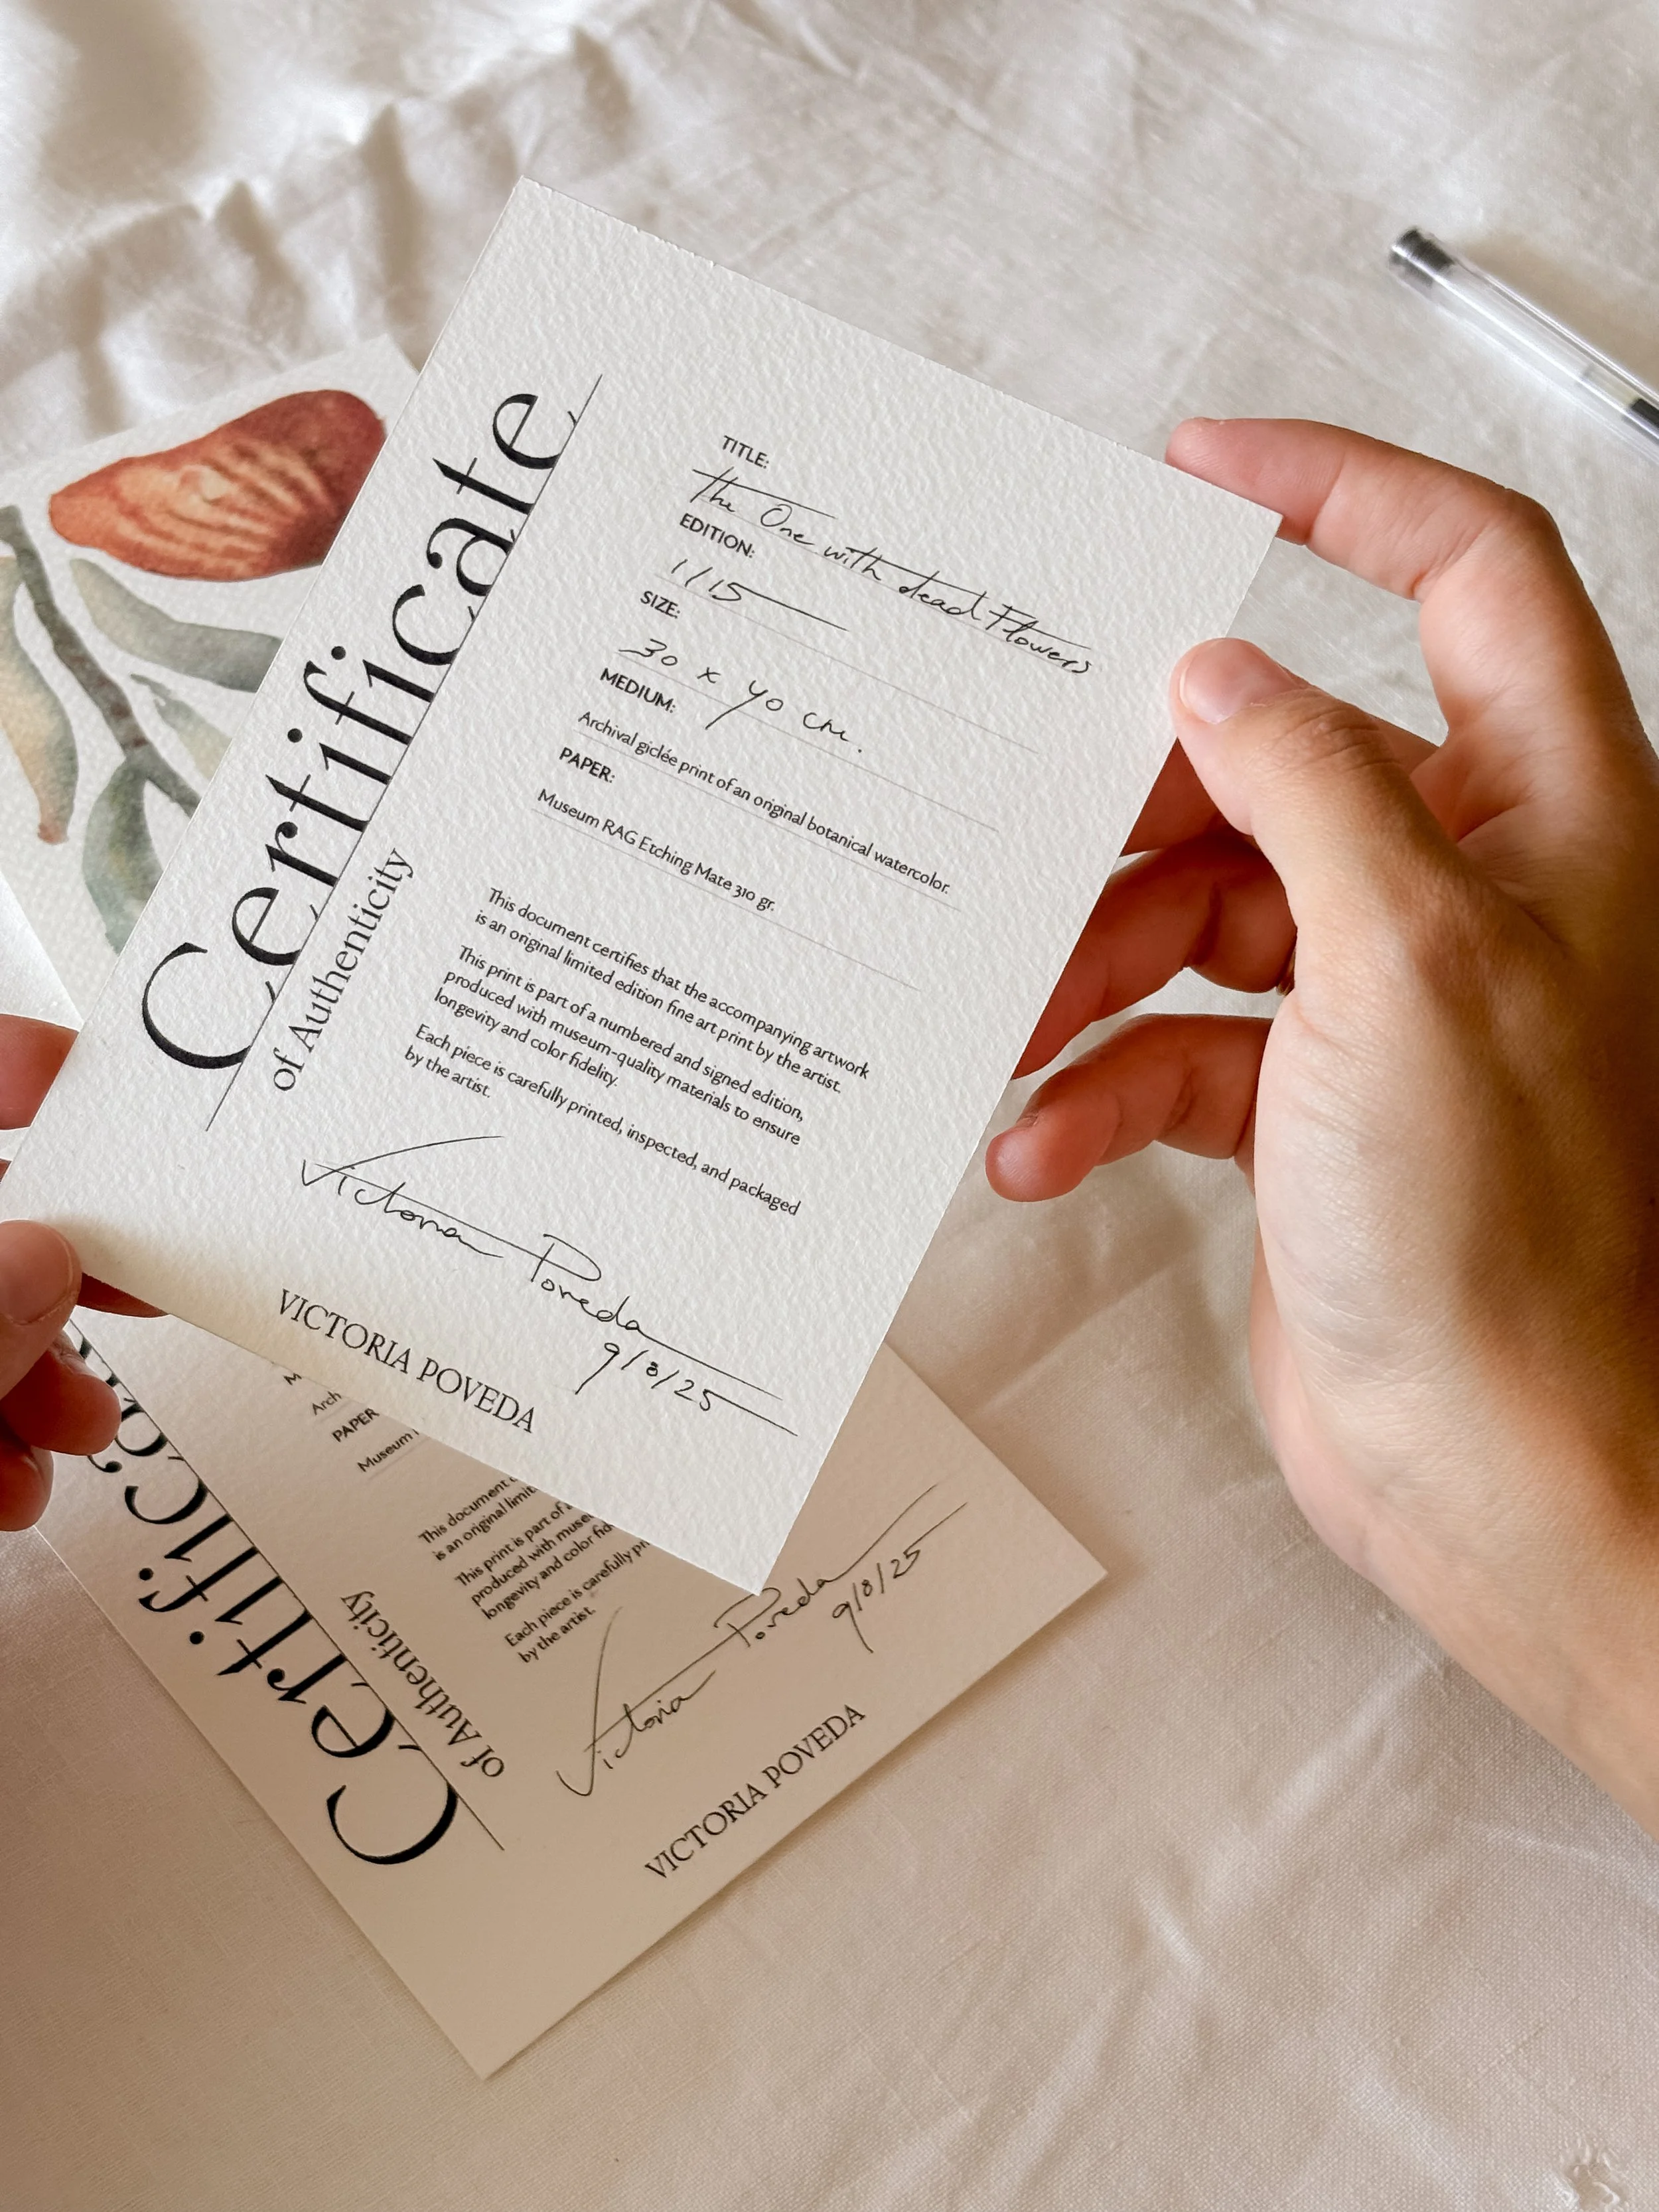 Certificate
of Authenticity
TITLE:
The One with dead Flowers
EDITION:
1/15
SIZE:
30 x 40 cm.
MEDIUM:
Archival giclée print of an original botanical watercolor.
PAPER:
Museum RAG Etching Mate 310 gr.
This document certifies that the accompanying artwork
is an original limited edition fine art print by the artist.
This print is part of a numbered and signed edition,
produced with museum-quality materials to ensure
longevity and color fidelity.
Each piece is carefully printed, inspected, and packaged
by the artist.
Victoria Poveda
9/8/25
VICTORIA POVEDA
Certifica
of Authenticity
M
Arch
PAPER
Museum
This document
is an original limit
This print is part of a
produced with muse
longevity and color fid
Each piece is carefully pr
by the artist.
Victoria Poveda
9/8/25
VICTORIA POVEDA